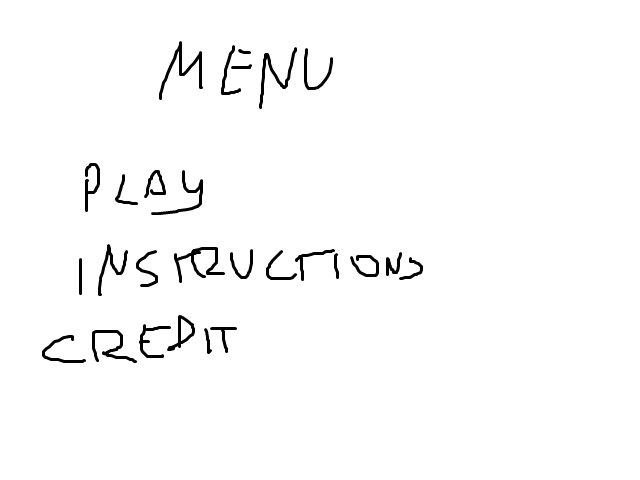 MENU
PLAY
INSTRUCTIONS
CREDIT